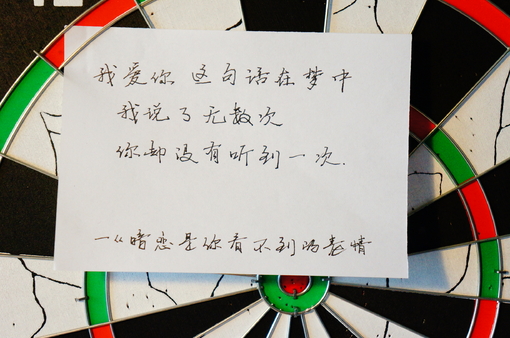 我爱你 这句话在梦中
我说了无数次
你却没有听到一次.
一从暗恋是你看不到的表情